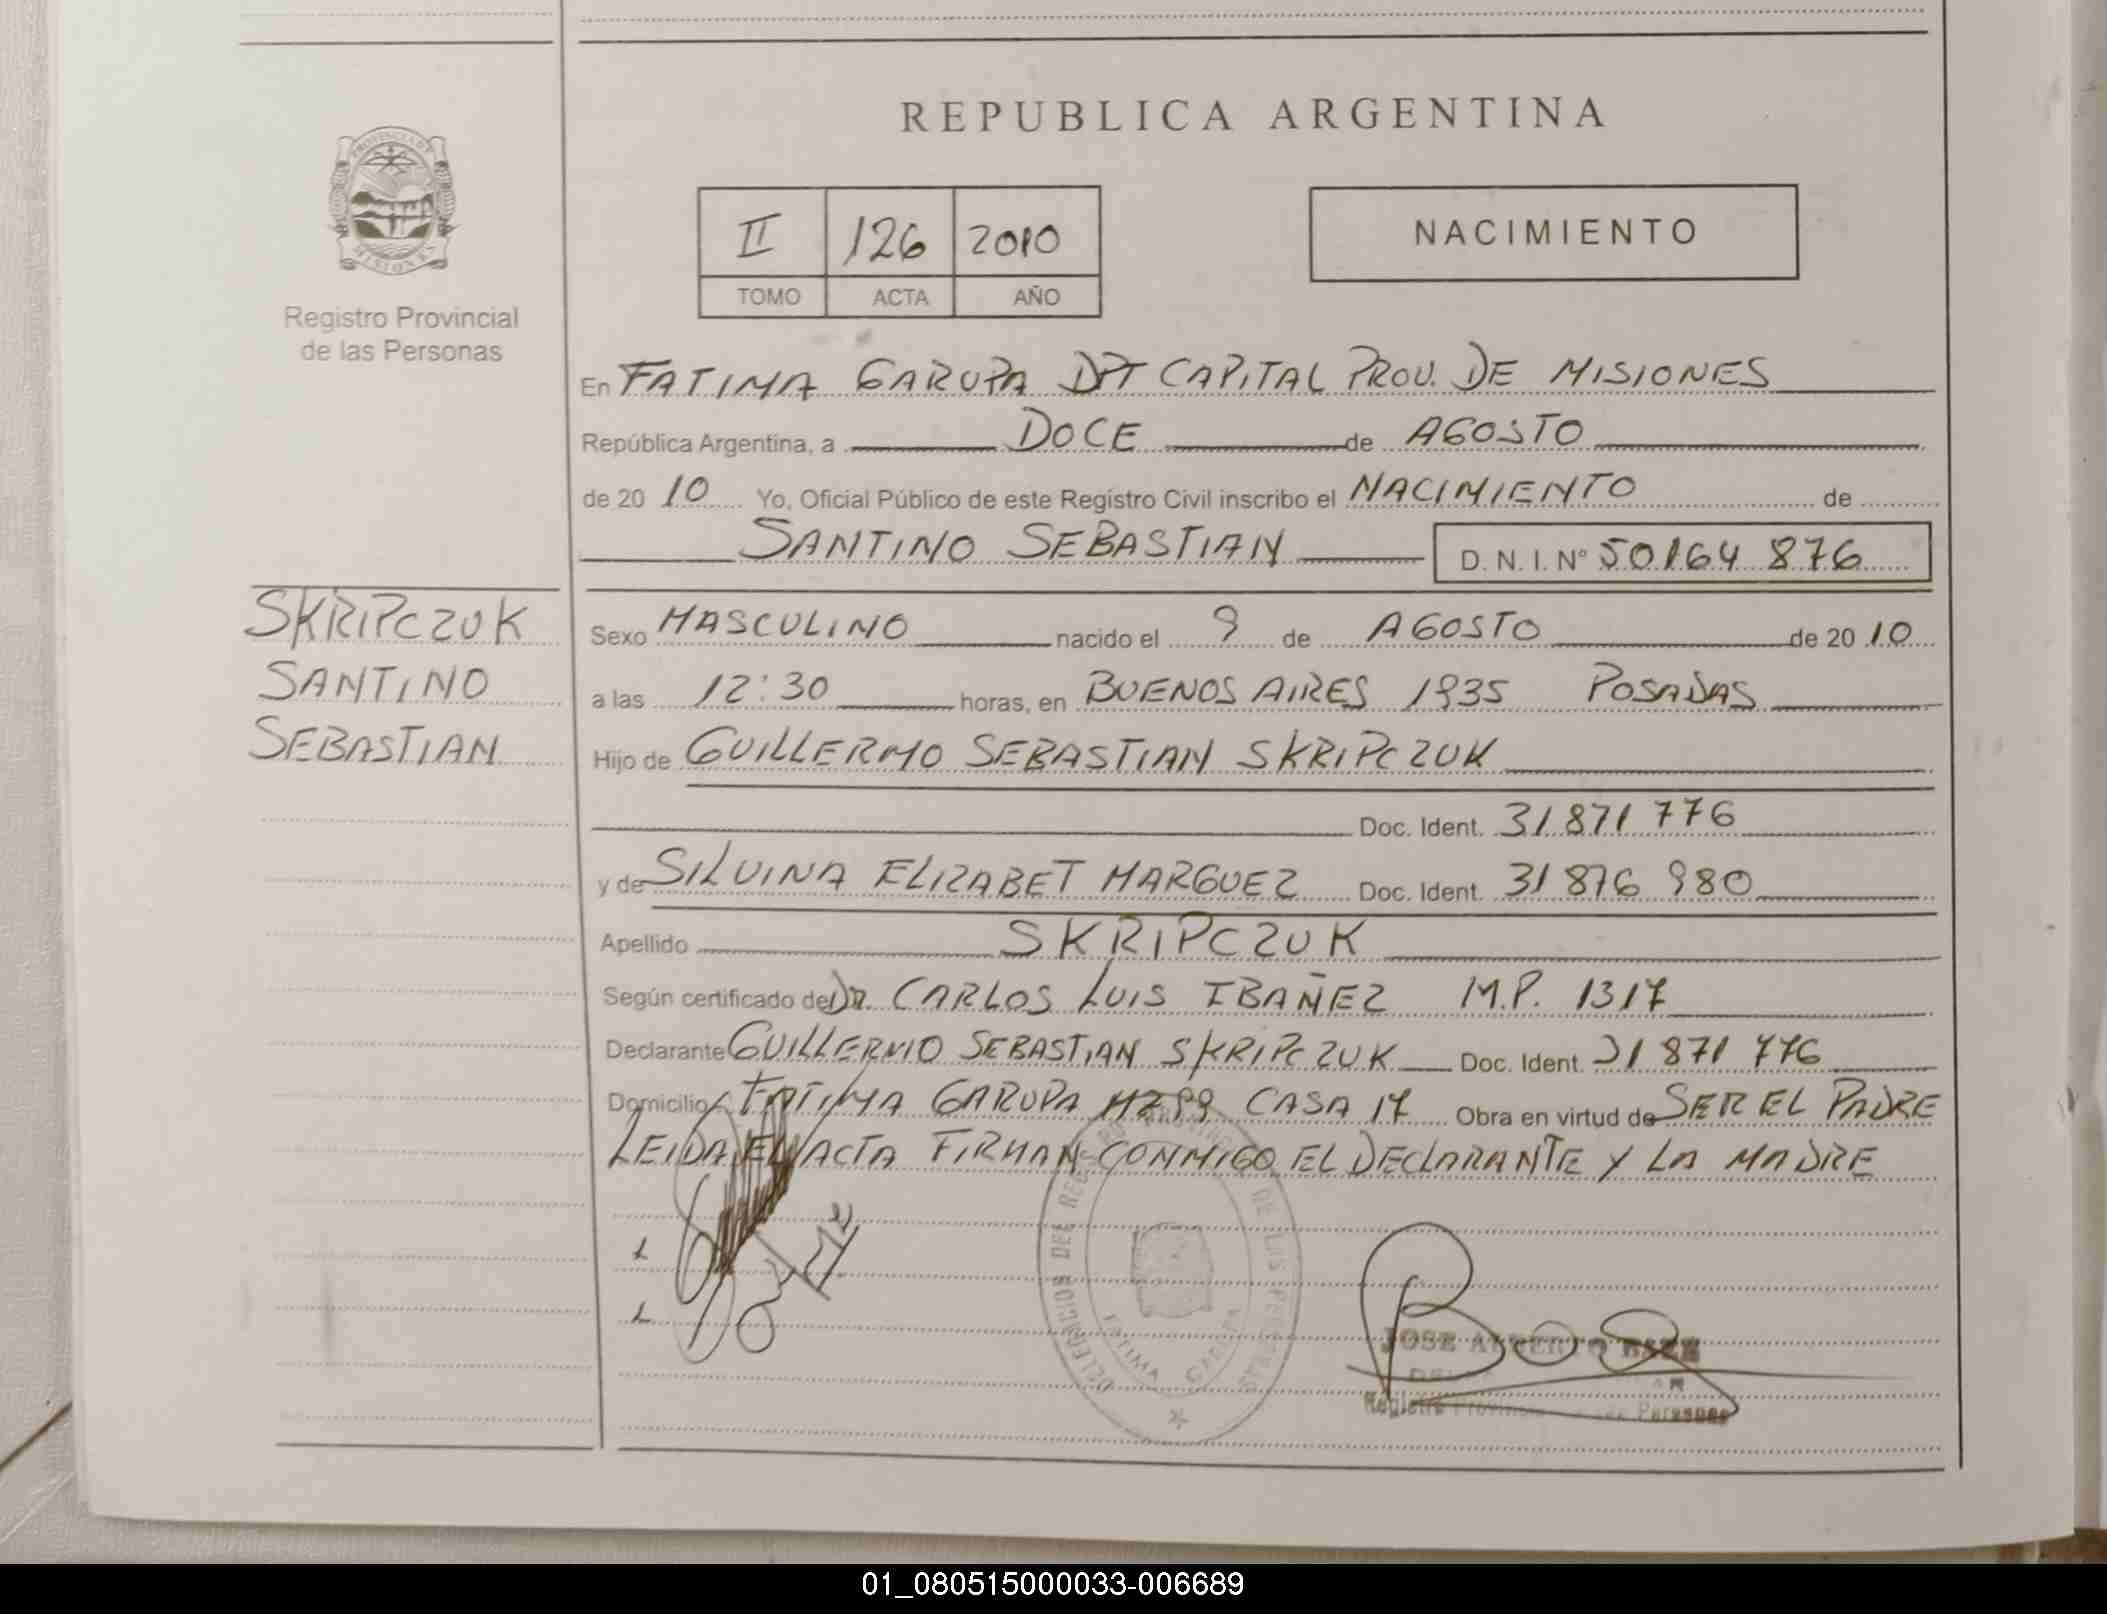 REPUBLICA ARGENTINA
PROVINCIA DE
MISIONES
Registro Provincial
de las Personas
II 126 2010
TOMO ACTA AÑO
NACIMIENTO
En FATIMA GARUPA DPT CAPITAL PROV. DE MISIONES
República Argentina, a DOCE de AGOSTO
de 20 10 Yo, Oficial Público de este Registro Civil inscribo el NACIMIENTO de
SANTINO SEBASTIAN D. N. I. N° 50164 876
SKRIPCZUK
SANTINO
SEBASTIAN
Sexo MASCULINO nacido el 9 de AGOSTO de 20 10
a las 12:30 horas, en BUENOS AIRES 1935 POSADAS
Hijo de GUILLERMO SEBASTIAN SKRIPCZUK
Doc. Ident. 31 871 776
y de SILVINA ELIZABET MARGUEZ Doc. Ident. 31 876 980
Apellido SKRIPCZUK
Según certificado de DR. CARLOS LUIS IBAÑEZ M.P. 1317
Declarante GUILLERMO SEBASTIAN SKRIPCZUK Doc. Ident. 31 871 776
Domicilio FATIMA GARUPA MZ 99 CASA 17 Obra en virtud de SER EL PADRE
LEIDA EL ACTA FIRMAN CONMIGO EL DECLARANTE Y LA MADRE
DE LAS PERSONAS
FATIMA GARUPA
JOSE ALBERTO BAEZ
Registro Provincial de las Personas
01_080515000033-006689